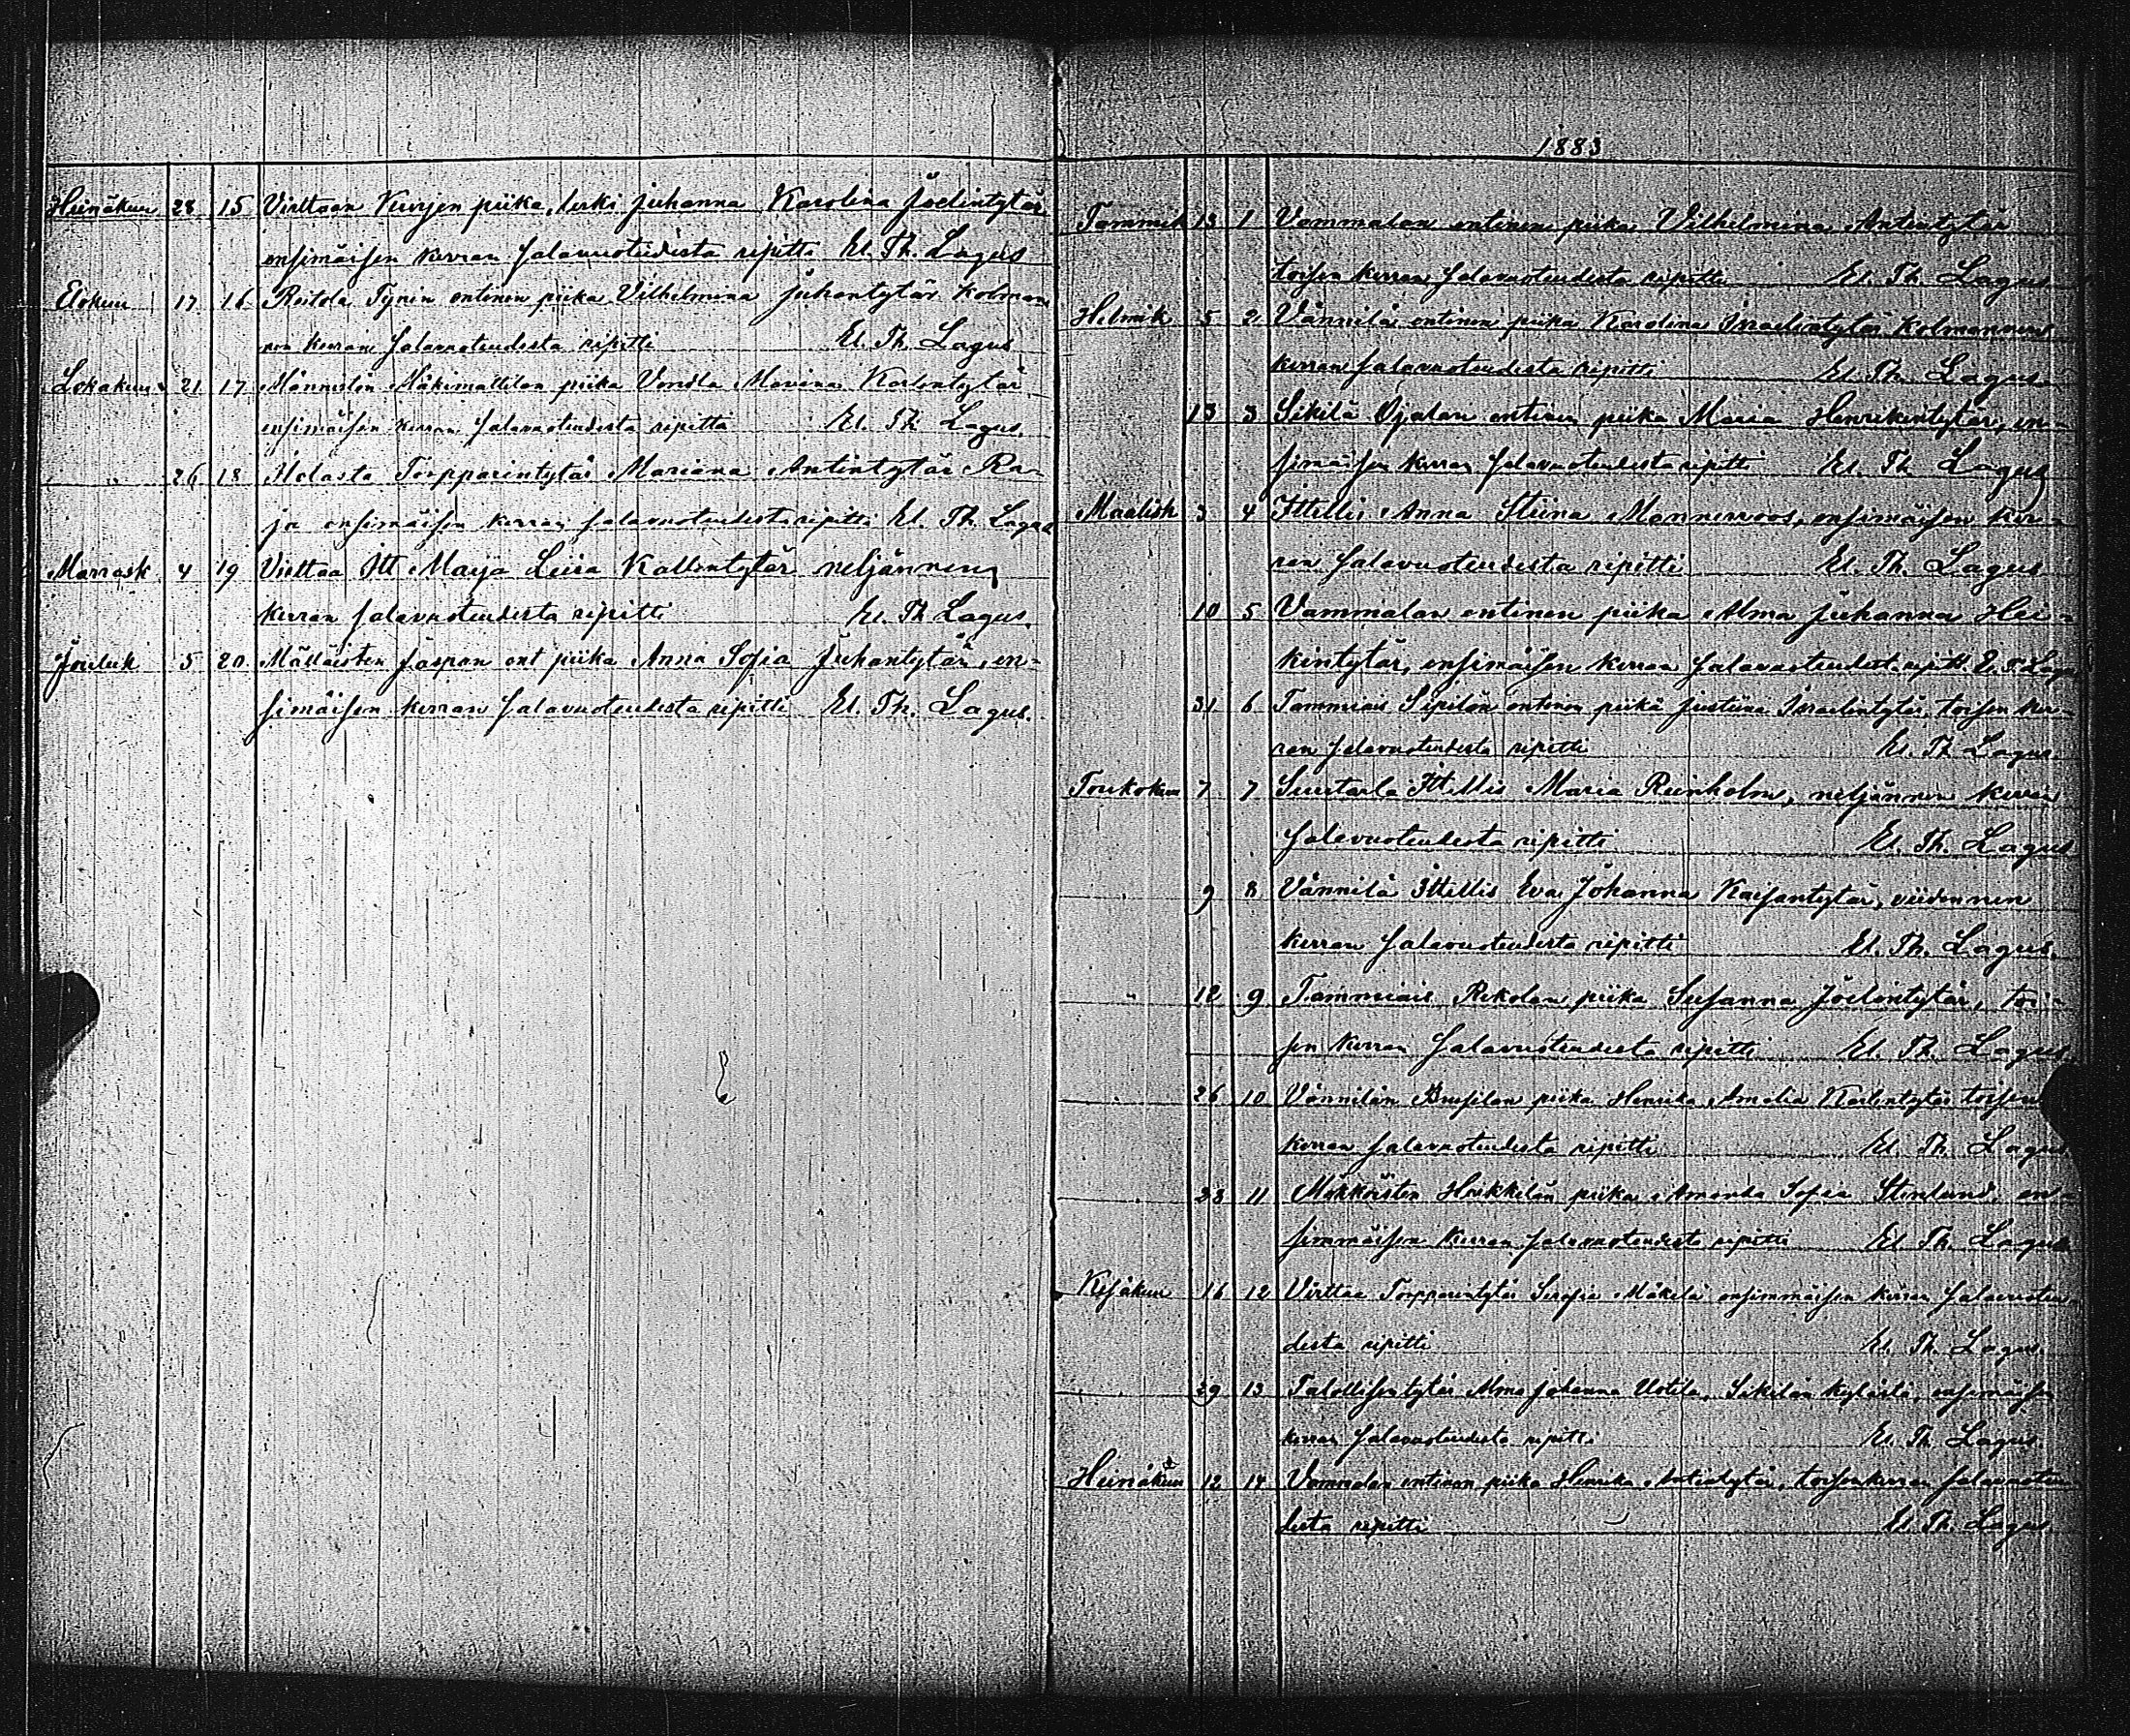 Heinäkuu 28 15 Virttaan Kurjen piika, leski Juhanna Karolina Joelintytär
ensimäisen kerran salavuoteudesta ripitti El. Th. Lagus
Elokuu 17 16 Reitola Tynin entinen piika Vilhelmina Juhantytär kolman
nen kerran salavuoteudesta ripitti El. Th. Lagus
Lokakuu 21 17 Männistön Mäkimattilan piika Vendla Mavina Karlentytär
ensimäisen kerran salavuoteudesta ripitti El. Th. Lagus.
26 18 Torpparintytär Mariana Antintytär Ra-
ja ensimäisen kerran salavuoteudesta ripitti El. Th. Lagus
Marrask 4 19 Virttaa Itt Maija Leisa Kallentytär neljännen
kerran salavuoteudesta ripitti El. Th Lagus.
Jouluk 5 20 Mälläisten Jaspan ent piika Anna Sofia Juhantytär, en-
simäisen kerran salavuoteudesta ripitti El. Th. Lagus.
1883
Tammik 13 1 Vammalan entinen piika Vilhelmina Antintytär
toisen kerran salavuoteudesta ripitti El. Th. Lagus
Helmik 5 2 Vännilä entinen piika Karolina Israelintytär kolmannen
kerran salavuoteudesta ripitti El. Th. Lagus
13 3 Sikilä Ojalan entinen piika Maria Henrikintytär, en-
simäisen kerran salavuoteudesta ripitti El. Th Lagus
Maalisk 3 4 Ittellis Anna Stiina Mannerroos, ensimäisen ker-
ran salavuoteudesta ripitti El. Th. Lagus
10 5 Vammalan entinen piika Alma Juhanna Hei-
kintytär, ensimäisen kerran salavuoteudest. ripitt. E. T. Lagus
31 6 Tammiais Sipilän entinen piika Justiina Israelintytär, toisen ker-
ran salavuoteudesta ripitti El. Th Lagus.
Toukokuu 7 7 Suutarla Ittellis Maria Reinholm, neljännen kerran
salavuoteudesta ripitti El. Th. Lagus
9 8 Vännilä Ittellis Eva Johanna Kaisantytär, viidennen
kerran salavuoteudesta ripitti El. Th. Lagus.
" 12 9 Tammiais Rekolan piika Susanna Joelintytär, toi-
sen kerran salavuoteudesta ripitti El. Th. Lagus.
26 10 Vännilän piika Henrika Amalia Karlentytär toisen
kerran salavuoteudesta ripitti El. Th. Lagus
28 11 Mökköisten Heikkilän piika Amanda Sofia Stenlund, en-
simmäisen kerran salavuoteudesta ripitti El Th. Lagus
Kesäkuu 16 12 Virttaa Torpparintytär Serafia Mäkelä ensimmäisen kerran salavuoteu-
desta ripitti El. Th. Lagus.
29 13 Talollisen tytär Alma Johanna Uotila, Sikilän kylästä, ensimäisen
kerran salavuoteudesta ripitti El. Th Lagus.
Heinäkuu 12 14 Vammalan entinen piika Henrika Antintytär, toisen kerran salavuoteu-
desta ripitti El. Th. Lagus.